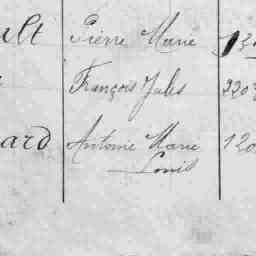 alt Pierre Marie
François Jules
ard Antoine Marie
Louis